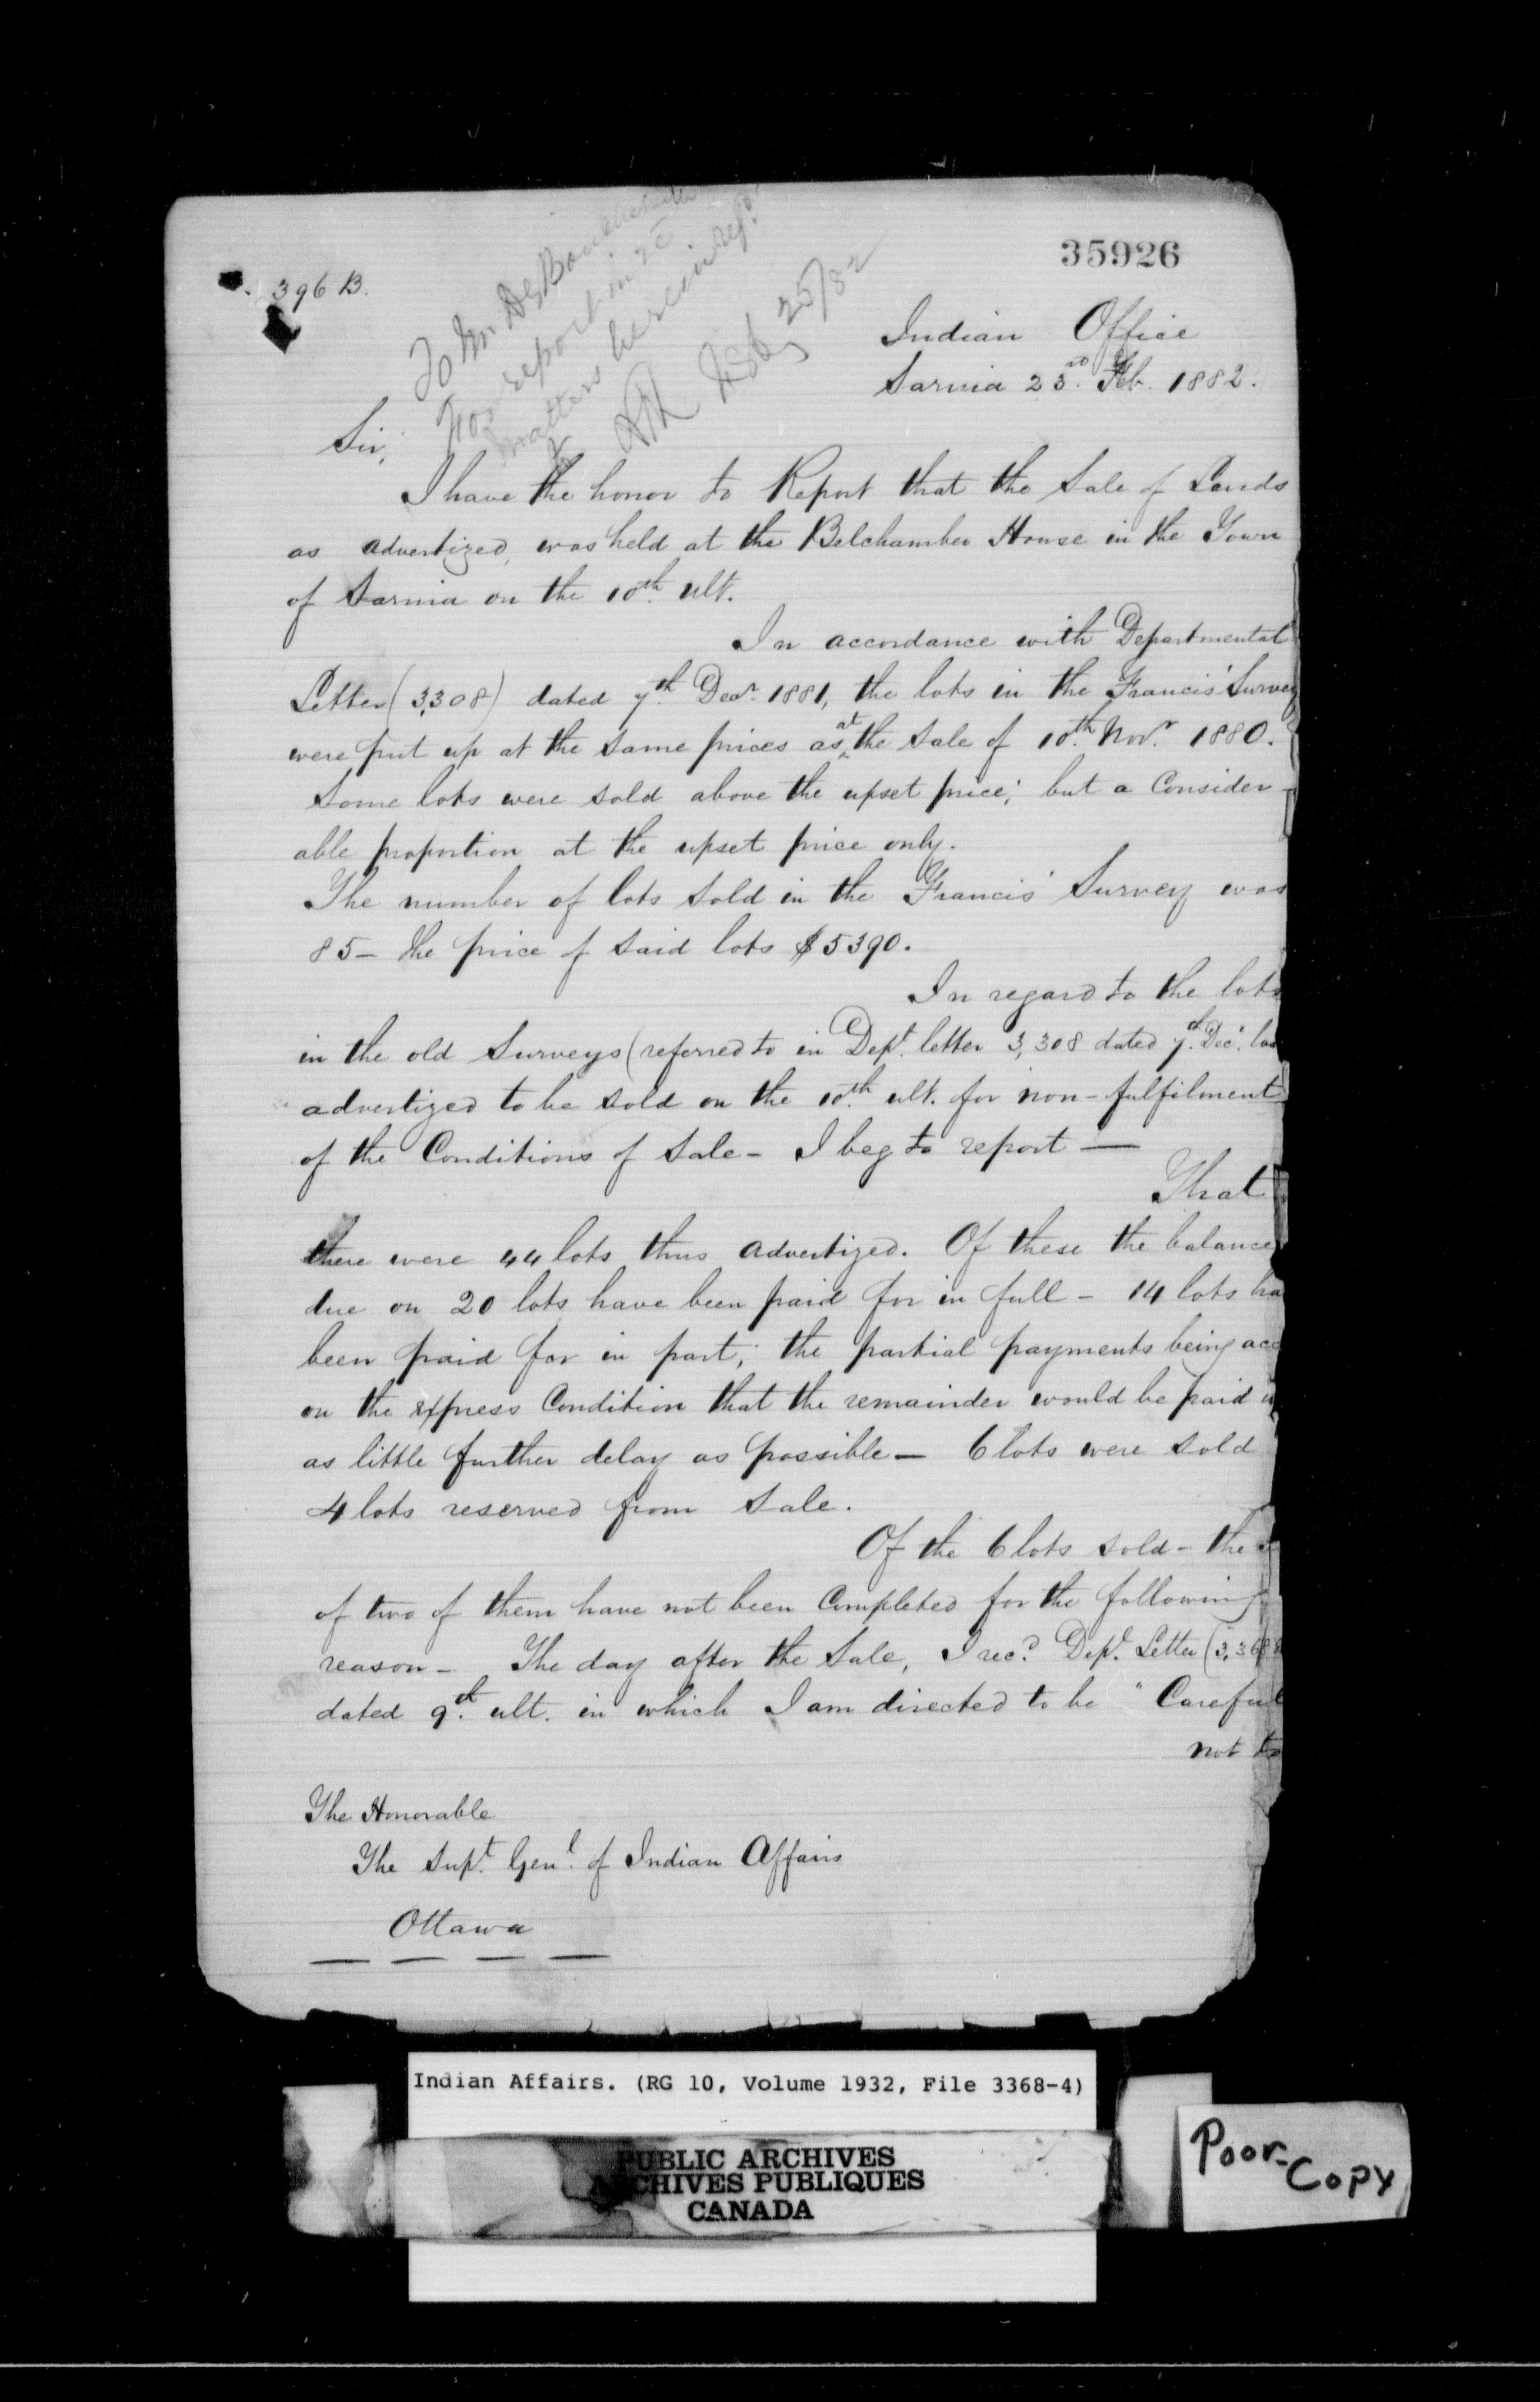 35926
396 B.
To Mr
For report in re
matters herein refd.
Feby 25/82
Indian Office
Sarnia 23rd. Feb. 1882.
Sir,
I have the honor to Report that the Sale of Lands
as advertized, was held at the Belchamber House in the Town
of Sarnia on the 10th. ult.
In accordance with Departmental
Letter (3,308) dated 7th. Decr. 1881, the lots in the Francis' Survey
were put up at the same prices as at the Sale of 10th. Novr. 1880.
Some lots were sold above the upset price; but a Consider-
able proportion at the upset price only.
The number of lots sold in the Francis' Survey was
85 - the price of said lots $5390.
In regard to the lots
in the old Surveys (referred to in Dept. letter 3,308 dated 7th. Decr. las
advertized to be sold on the 10th. ult. for non-fulfilment
of the Conditions of Sale - I beg to report —
That
there were 44 lots thus advertized. Of these the balance
due on 20 lots have been paid for in full - 14 lots ha
been paid for in part; the partial payments being acc
on the express Condition that the remainder would be paid
as little further delay as possible — 6 lots were sold
4 lots reserved from Sale.
Of the 6 lots sold - the
of two of them have not been Completed for the following
reason - The day after the Sale, I recd. Dept. Letter (3,368
dated 9th. ult. in which I am directed to be "Careful
not to
The Honorable
The Supt. Genl. of Indian Affairs
Ottawa
Indian Affairs. (RG 10, Volume 1932, File 3368-4)
PUBLIC ARCHIVES
ARCHIVES PUBLIQUES
CANADA
Poor-
Copy